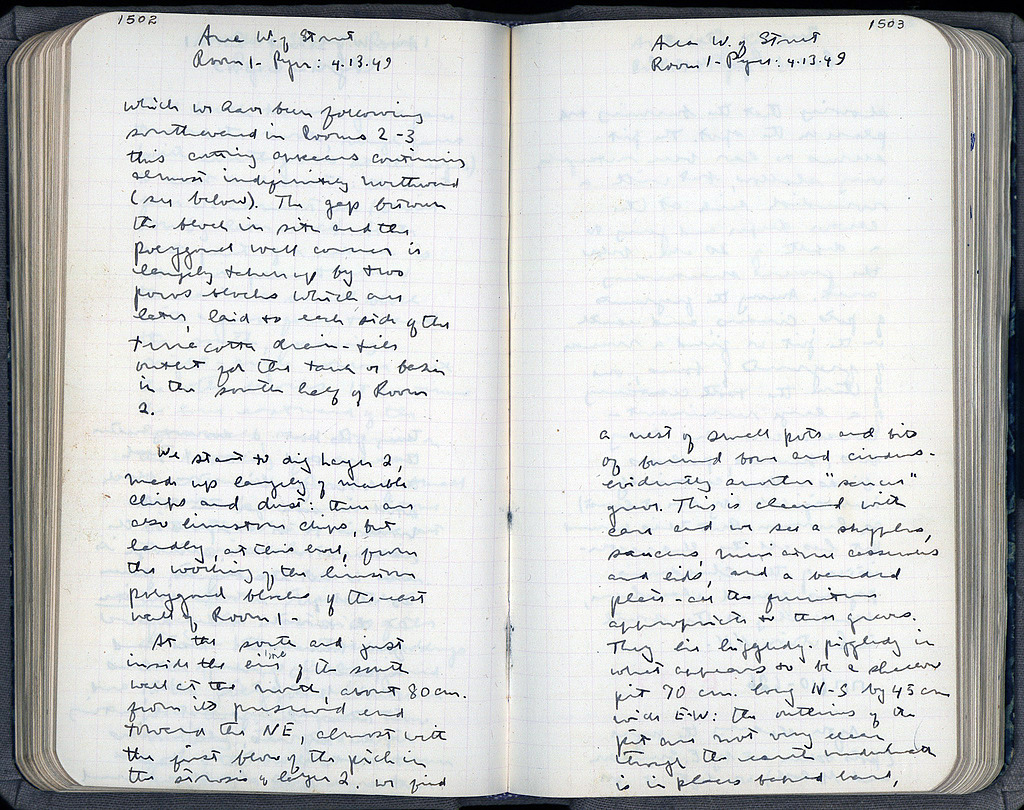 1502
Area W. of Street
Room 1 - Pyre: 4.13.49
which we have been following
southward in Rooms 2-3
this cutting appears continuing
almost indefinitely northward
(see below). The gap between
the block in situ and the
polygonal wall corner is
largely taken up by two
poros blocks which are
later, laid to each side of the
terracotta drain-tile
outlet for the tank or basin
in the south half of Room
2.
We start to dig Layer 2,
made up largely of marble
chips and dust: there are
also limestone chips, but
hardly, at this level, from
the working of the limestone
polygonal blocks of the east
wall of Room 1-
At the south and just
inside the line of the south
wall at the north, about 80 cm.
from its preserved end
toward the NE, almost with
the first blow of the pick in
the strosis of layer 2. we find
1503
Area W. of Street
Room 1 - Pyre: 4.13.49
a nest of small pots and bits
of burned bone and cinders -
evidently another "saucer"
grave. This is cleaned with
care and we see a skyphos,
saucers, miniature casseroles
and lids, and a banded
plate - all the furniture
appropriate to these graves.
They lie higgledy-piggledy in
what appears to be a shallow
pit 70 cm. long N-S by 45 cm
wide E-W: the outlines of the
pit are not very clear
though the earth underneath
is in places baked hard,